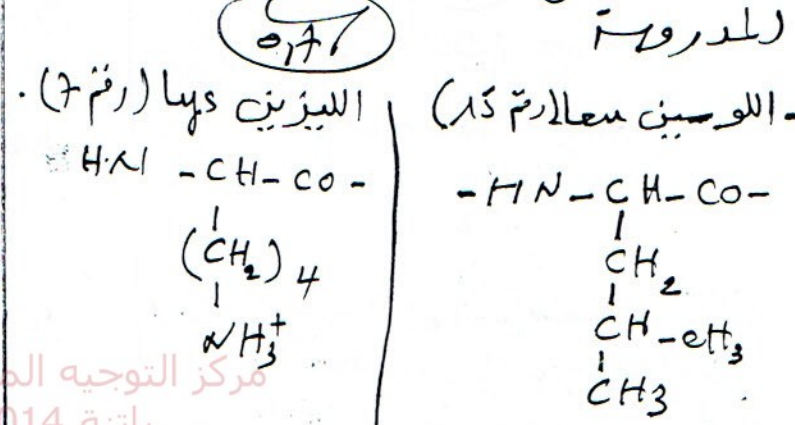 المدروسة
0,75
- اللوسين Leu (رقم 15)
- HN - CH - CO -
CH2
CH - CH3
CH3
الليزين Lys (رقم 7).
HN - CH - CO -
(CH2)4
NH3+
مركز التوجيه
باتنة 2014